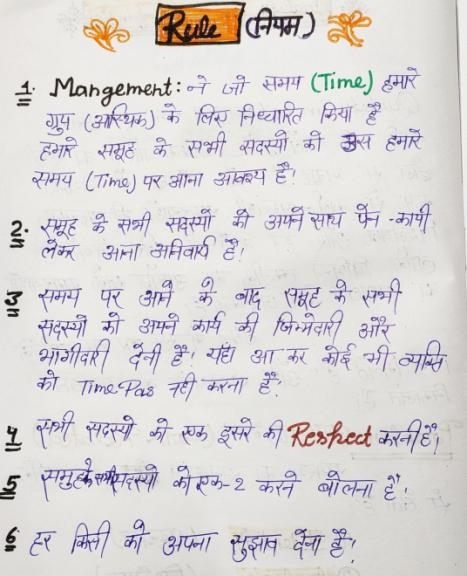 Rule (नियम)
1. Mangement: ने जो समय (Time) हमारे
ग्रुप (आस्थिक) के लिए निर्धारित किया है
हमारे समूह के सभी सदस्यो को उस हमारे
समय (Time) पर आना आवश्य है।
2. समूह के सभी सदस्यो को अपने साथ पेन - कापी
लेकर आना अनिवार्य है।
3 समय पर आने के बाद समूह के सभी
सदस्यो को अपने कार्य की जिम्मेदारी और
भागीदारी देनी है। यहाँ आ कर कोई भी व्यक्ति
को Time Pas नही करना है।
4 सभी सदस्यो को एक दूसरे की Respect करनी है।
5 समुह के सभी सदस्यो को एक-2 करने बोलना है।
6 हर किसी को अपना सुझाव देना है।